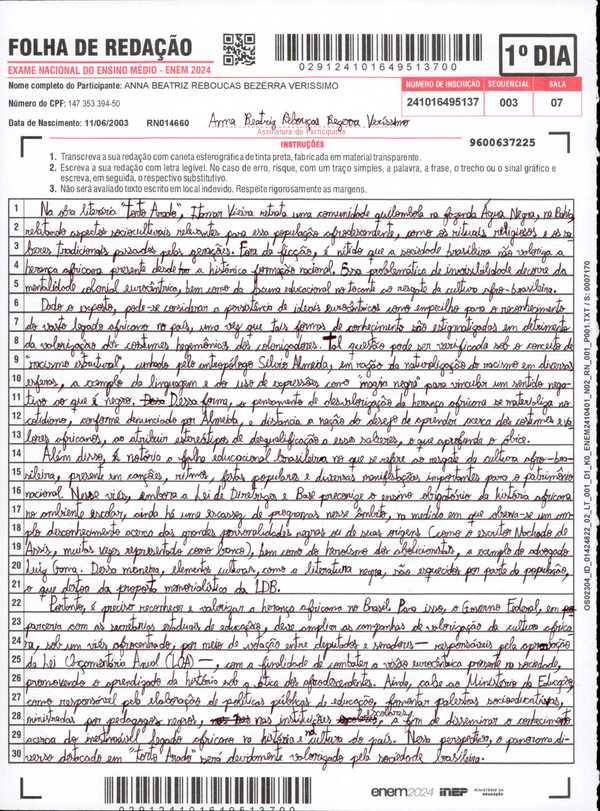 FOLHA DE REDAÇÃO
EXAME NACIONAL DO ENSINO MÉDIO - ENEM 2024
0291241016495137OO
1º DIA
Nome completo do Participante: ANNA BEATRIZ REBOUCAS BEZERRA VERISSIMO
Número do CPF: 147.353.394-50
NÚMERO DE INSCRIÇÃO SEQUENCIAL SALA
241016495137 003 07
Data de Nascimento: 11/06/2003 RN014660
Anna Beatriz Rebouças Bezerra Veríssimo
Assinatura do Participante
INSTRUÇÕES
9600637225
1. Transcreva a sua redação com caneta esferográfica de tinta preta, fabricada em material transparente.
2. Escreva a sua redação com letra legível. No caso de erro, risque, com um traço simples, a palavra, a frase, o trecho ou o sinal gráfico e
escreva, em seguida, o respectivo substitutivo.
3. Não será avaliado texto escrito em local indevido. Respeite rigorosamente as margens.
1 Na obra literária "Torto Arado", Itamar Vieira retrata uma comunidade quilombola na fazenda Água Negra, na Bahia,
2 relatando aspectos socioculturais relevantes para essa população afrodescendente, como os rituais religiosos e os sa-
3 beres tradicionais passados pelas gerações. Fora da ficção, é nítido que a sociedade brasileira não valoriza a
4 herança africana presente desde a histórica formação nacional. Essa problemática de invisibilidade decorre da
5 mentalidade colonial eurocêntrica, bem como da lacuna educacional no tocante ao resgate da cultura afro-brasileira.
6 Dado o exposto, pode-se considerar a persistência de ideais eurocêntricos como empecilho para o reconhecimento
7 do vasto legado africano no país, uma vez que tais formas de conhecimento são estigmatizadas em detrimento
8 da valorização dos costumes hegemônicos dos colonizadores. Tal questão pode ser verificada sob o conceito de
9 "racismo estrutural", cunhado pelo antropólogo Silvio Almeida, em razão da naturalização do racismo em diversas
10 esferas, a exemplo da linguagem e do uso de expressões como "magia negra" para vincular um sentido nega-
11 tivo ao que é negro. Dessa forma, o pensamento de desvalorização da herança africana se naturaliza no
12 cotidiano, conforme denunciado por Almeida, e distancia a nação do desejo de aprender acerca dos costumes e va-
13 lores africanos, ao atribuir estereótipos de desqualificação a esses saberes, o que aprofunda o óbice.
14 Além disso, é notória a falha educacional brasileira no que se refere ao resgate da cultura afro-bra-
15 sileira, presente em canções, ritmos, festas populares e diversas manifestações importantes para o patrimônio
16 nacional. Nesse viés, embora a Lei de Diretrizes e Base preconize o ensino obrigatório da história africana
17 no ambiente escolar, ainda há uma escassez de programas nesse âmbito, na medida em que observa-se um am-
18 plo desconhecimento acerca das grandes personalidades negras ou de suas origens (como o escritor Machado de
19 Assis, muitas vezes representado como branco), bem como do heroísmo dos abolicionistas, a exemplo do advogado
20 Luiz Gama. Dessa maneira, elementos culturais, como a literatura negra, são esquecidos por parte da população,
21 o que destoa da proposta memorialística da LDB.
22 Portanto, é preciso reconhecer e valorizar a herança africana no Brasil. Para isso, o Governo Federal, em
23 parceria com as secretarias estaduais de educação, deve ampliar as campanhas de valorização da cultura africa-
24 na, sob um viés afrocentrado, por meio de votação entre deputados e senadores — responsáveis pela aprovação
25 da Lei Orçamentária Anual (LOA) —, com a finalidade de combater a visão eurocêntrica presente na sociedade,
26 promovendo o aprendizado da história sob a ótica dos afrodescendentes. Ainda, cabe ao Ministério da Educação,
27 como responsável pela elaboração de políticas públicas de educação, fomentar palestras socioeducativas,
28 ministradas por pedagogos negros, nas instituições escolares, a fim de disseminar o conhecimento
29 acerca do inestimável legado africano na história e na cultura do país. Nessa perspectiva, o panorama di-
30 verso destacado em "Torto Arado" será devidamente valorizado pela sociedade brasileira.
OS02304_ID_01424822_02_LT_001_D1_K0_ENEM2410401_N02_RN_001_P001.TXT / S: 0007170
enem2024 inep MINISTÉRIO DA EDUCAÇÃO
029124101649513700